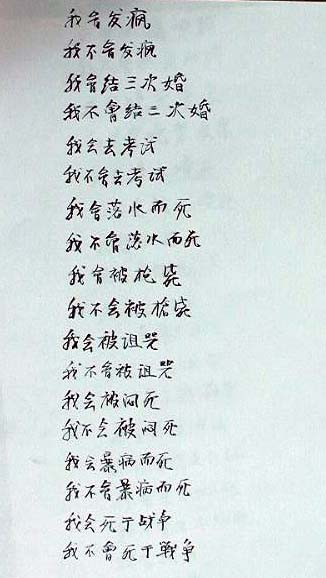 我会发疯
我不会发疯
我曾结三次婚
我不曾结三次婚
我会去考试
我不会去考试
我会落水而死
我不会落水而死
我会被枪毙
我不会被枪毙
我会被诅咒
我不会被诅咒
我会被闷死
我不会被闷死
我会暴病而死
我不会暴病而死
我会死于战争
我不会死于戰争